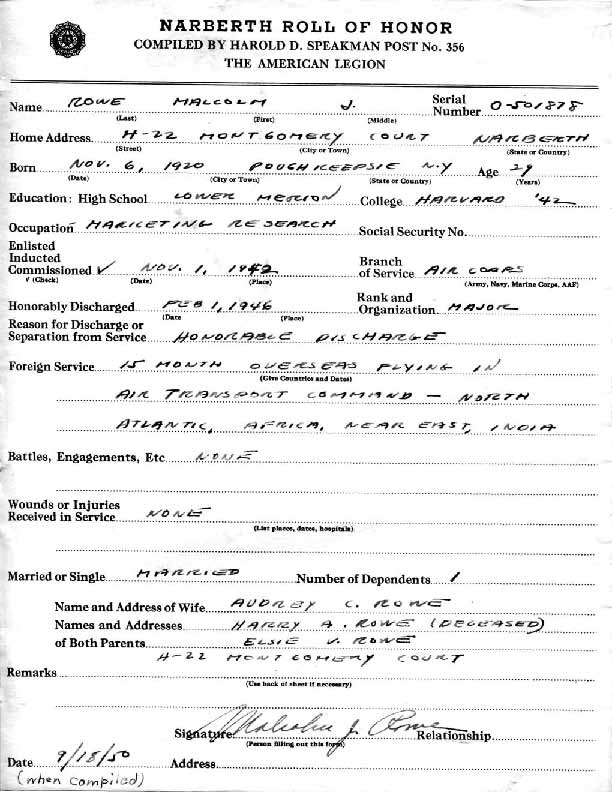 NARBERTH ROLL OF HONOR
COMPILED BY HAROLD D. SPEAKMAN POST No. 356
THE AMERICAN LEGION
Name ROWE MALCOLM J. Serial Number O-501878
(Last) (First) (Middle)
Home Address H-22 MONTGOMERY COURT NARBERTH
(Street) (City or Town) (State or Country)
Born NOV. 6, 1920 POUGHKEEPSIE N.Y Age 29
(Date) (City or Town) (State or Country) (Years)
Education: High School LOWER MERION College HARVARD '42
Occupation MARKETING RESEARCH Social Security No.
Enlisted
Inducted
Commissioned √ NOV. 1, 1942 Branch of Service AIR CORPS
√ (Check) (Date) (Place) (Army, Navy, Marine Corps, AAF)
Honorably Discharged FEB 1, 1946 Rank and Organization MAJOR
(Date (Place)
Reason for Discharge or
Separation from Service HONORABLE DISCHARGE
Foreign Service 15 MONTH OVERSEAS FLYING IN
(Give Countries and Dates)
AIR TRANSPORT COMMAND - NORTH
ATLANTIC, AFRICA, NEAR EAST, INDIA
Battles, Engagements, Etc NONE
Wounds or Injuries
Received in Service NONE
(List places, dates, hospitals)
Married or Single MARRIED Number of Dependents 1
Name and Address of Wife AUDREY C. ROWE
Names and Addresses HARRY A. ROWE (DECEASED)
of Both Parents ELSIE V. ROWE
H-22 MONTGOMERY COURT
Remarks
(Use back of sheet if necessary)
Signature Malcolm J. Rowe Relationship
(Person filling out this form)
Date 9/18/50 Address
(when compiled)